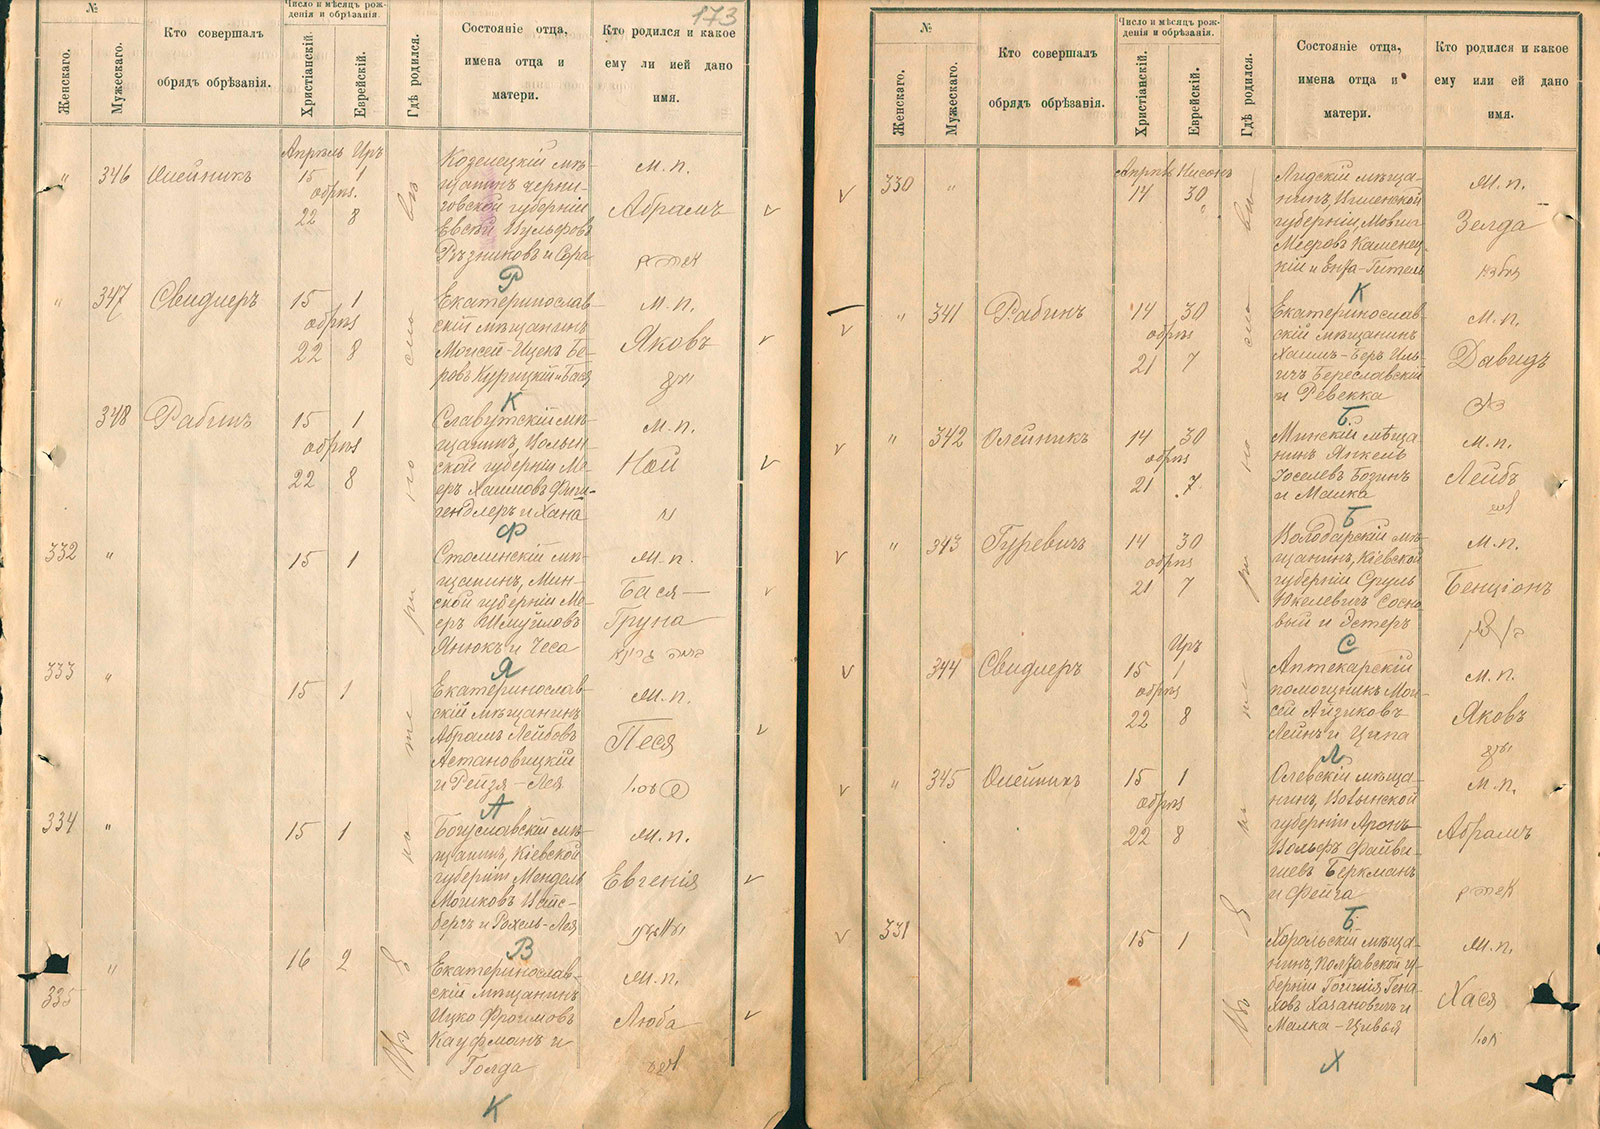 173
№
Женскаго.
Мужескаго.
Кто совершалъ
обрядъ обрѣзанія.
Число и мѣсяцъ рож-
денія и обрѣзанія.
Христіанскій.
Еврейскій.
Гдѣ родился.
Состояніе отца,
имена отца и
матери.
Кто родился и какое
ему ли ией дано
имя.
Апрѣль Иръ
" 346 Олейникъ 15 1
обрѣз.
22 8
Козелецкій мѣ-
щанинъ Черни-
говской губерніи
Евсѣй Вульфовъ
Рѣзниковъ и Сора
м. п.
Абрамъ
Р
" 347 Свидлеръ 15 1
обрѣз
22 8
Екатеринослав-
скій мѣщанинъ
Моисей-Ицекъ Бе-
ровъ Курицкій и Бася
м. п.
Яковъ
К
348 Рабинъ 15 1
обрѣз
22 8
Славутскій мѣ-
щанинъ, Волын-
ской губерніи Ме-
еръ Хаимовъ
и Хана
м. п.
Ной
נח
Ф
332 " 15 1
Столинскій мѣ-
щанинъ, Мин-
ской губерніи Ме-
еръ Шмуйловъ
Янюкъ и Чеса
м. п.
Бася —
Груна
Я
333 " 15 1
Екатеринослав-
скій мѣщанинъ
Абрамъ Лейбовъ
Астановицкій
и Рейзя-Лея
м. п.
Песя
А
334 " 15 1
Богуславскій мѣ-
щанинъ, Кіевской
губерніи Мендель
Мошковъ Вайс-
бергъ и Рохель-Лея
м. п.
Евгенія
В
335 " 16 2
Екатеринослав-
скій мѣщанинъ
Ицко Фроимовъ
Кауфманъ и
Голда
м. п.
Люба
К
Въ г. Екатеринославѣ
№
Женскаго.
Мужескаго.
Кто совершалъ
обрядъ обрѣзанія.
Число и мѣсяцъ рож-
денія и обрѣзанія.
Христіанскій.
Еврейскій.
Гдѣ родился.
Состояніе отца,
имена отца и
матери.
Кто родился и какое
ему или ей дано
имя.
Апрѣль Нисонъ
330 " 14 30
Лидскій мѣща-
нинъ Виленской
губерніи Мовша
Меировъ Каменец-
кій и Ента-Гитель
м. п.
Зелда
К
" 341 Рабинъ 14 30
обрѣз
21 7
Екатеринослав-
скій мѣщанинъ
Хаимъ-Беръ Иль-
ичъ Береславскій
и Ревекка
м. п.
Давидъ
דוד
Б
" 342 Олейникъ 14 30
обрѣз
21 7
Минскій мѣща
нинъ Янкель
Іоселевъ Бозинъ
и Малка
м. п.
Лейбъ
Б
" 343 Гуревичъ 14 30
обрѣз
21 7
Володарскій мѣ-
щанинъ, Кіевской
губерніи Сруль
Юкелевичъ Сосно-
вый и Эстеръ
м. п.
Бенціонъ
С
Иръ
344 Свидлеръ 15 1
обрѣз
22 8
Аптекарскій
помощникъ Мои-
сей Айзиковъ
Лейнъ и Ципа
м. п.
Яковъ
Л
" 345 Олейникъ 15 1
обрѣз
22 8
Олевскій мѣща-
нинъ, Волынской
губерніи Аронъ-
Вольфъ Файви-
шевъ Беркманъ
и Фейга
м. п.
Абрамъ
Б
331 15 1
Хорольскій мѣща-
нинъ, Полтавской гу-
берніи Гена-
ховъ Хазановичъ и
Малка-Цивья
м. п.
Хася
Х
Въ г. Екатеринославѣ